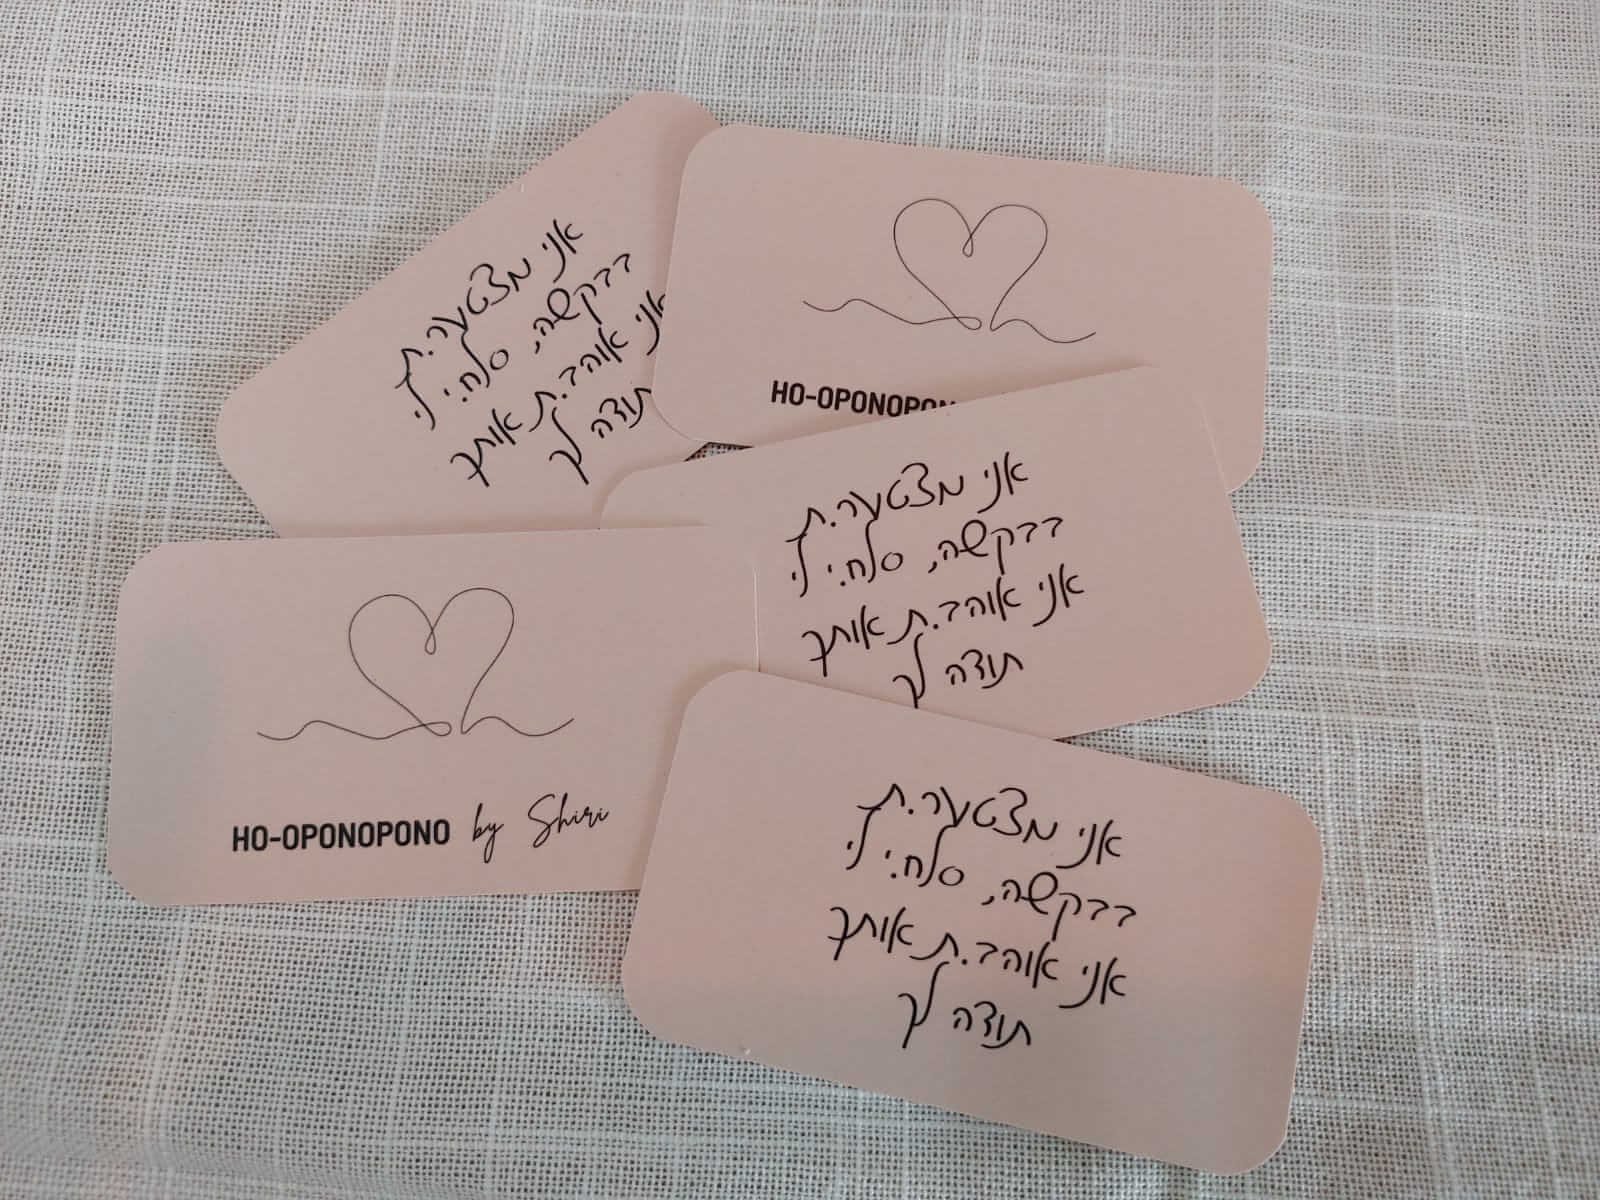 אני מצטער.ת
בבקשה, סלח.י לי
אני אוהב.ת אותך
תודה לך
HO-OPONOPON
אני מצטער.ת
בבקשה, סלח.י לי
אני אוהב.ת אותך
תודה לך
HO-OPONOPONO by Shiri
אני מצטער.ת
בבקשה, סלח.י לי
אני אוהב.ת אותך
תודה לך